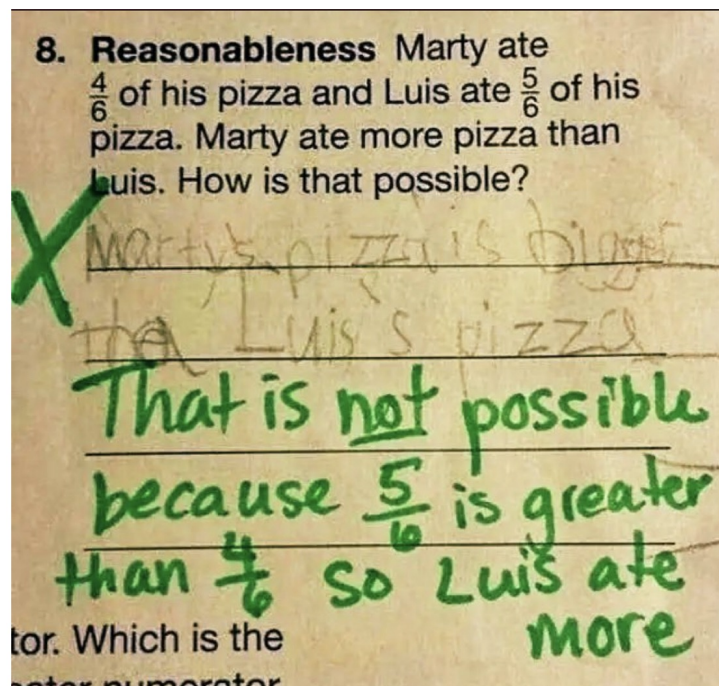 8. Reasonableness Marty ate
4/6 of his pizza and Luis ate 5/6 of his
pizza. Marty ate more pizza than
Luis. How is that possible?
X
Marty's pizza is bigger
than Luis's pizza
That is not possible
because 5/6 is greater
than 4/6 so Luis ate
more
tor. Which is the
numerator